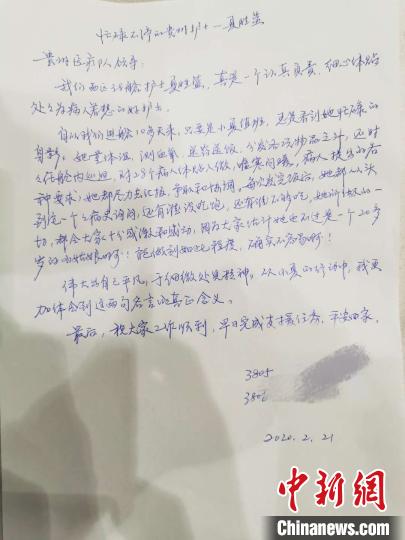 忙碌不停的贵州护士—夏胜蓝
贵州医疗队领导:
我们西区38舱护士夏胜蓝,真是一个认真负责,细心体贴
处处为病人着想的好护士。
自从我们进舱10多天来,只要是小夏值班,总是看到她忙碌的
身影。她量体温,测血氧,送药送饭,分发各项物品之外,还时
在舱内巡回,对28个病人体贴入微,嘘寒问暖,病人提出的各
种要求,她都尽力去汇报,争取和协调。每次发完饭后,她都从头
到尾一个个病史询问,还有谁没吃饱,还有谁不够吃,她所做的一
切,都令大家十分感激和感动,因为大家估计她也不过是一个20多
岁的小姑娘呀!能做到如此程度,确实不容易啊!
伟大出自平凡,于细微处见精神。从小夏的行动中,我更
加体会到这两句名言的真正含义。
最后,祝大家工作顺利,早日完成支援任务,平安回家。
3805
380
2020.2.21
中新网
Chinanews.com